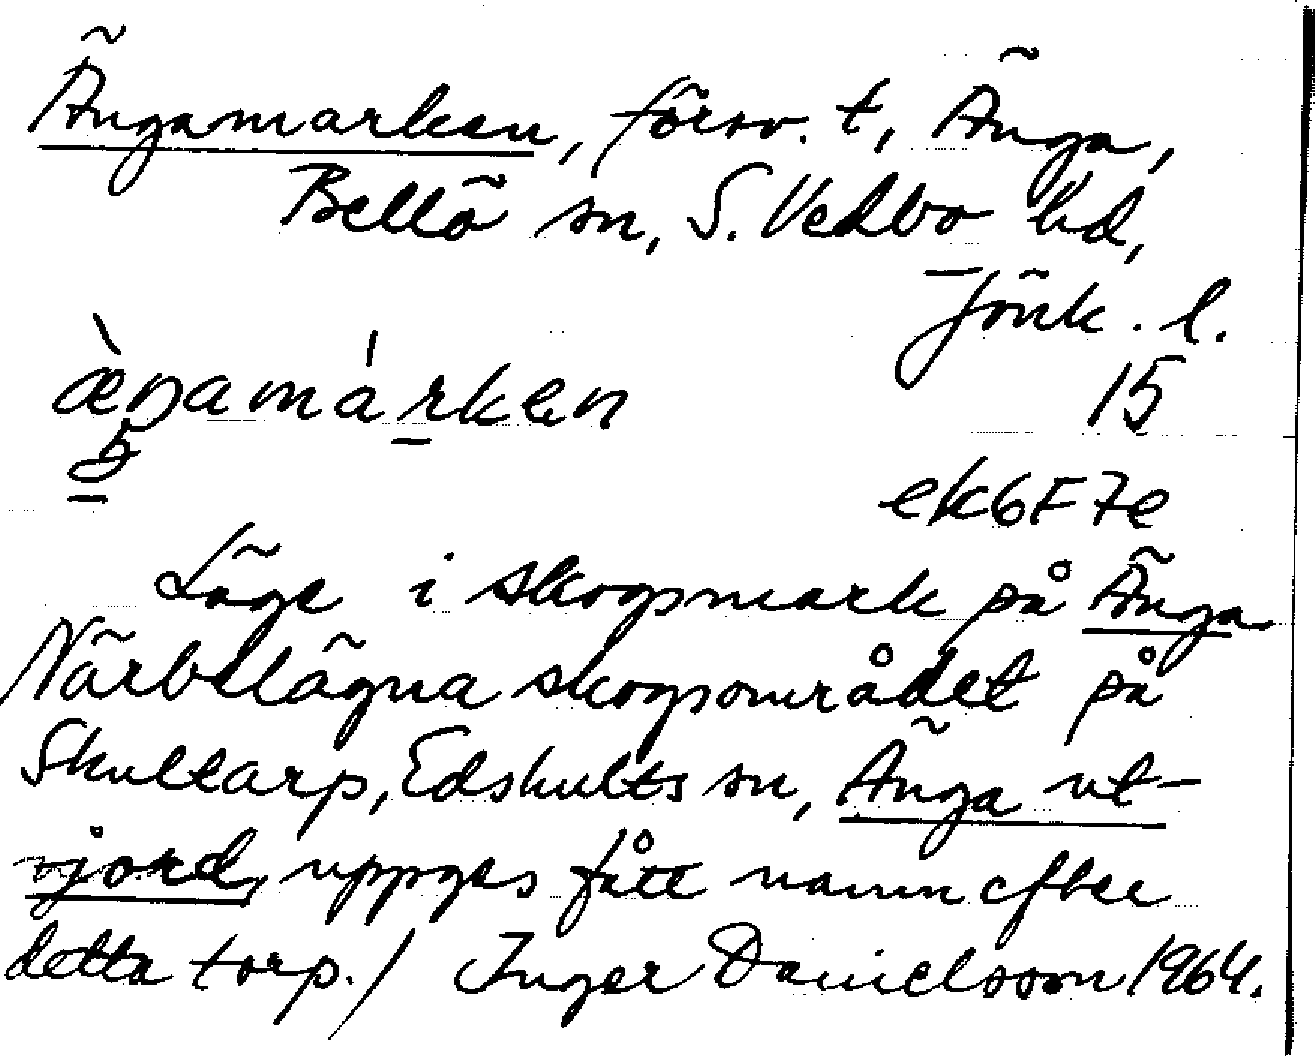 Ängamarken, försv. t, Änga,
Bellö sn, S. Vedbo hd,
Jönk. l.
æ̀ŋamárken 15
5
ek6F7e
Läge i skogsmark på Änga
Närbelägna skogsområdet på
Skullarp, Edshults sn, Änga ut-
jord, uppges fått namn efter
detta torp./ Inger Danielsson 1964.